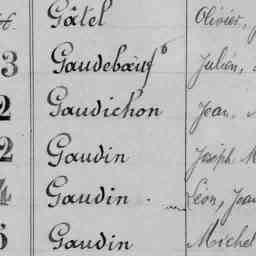 Gâtel Olivier,
3 Gaudebœuf Julien,
2 Gaudichon Jean.
2 Gaudin Joseph M
4 Gaudin Léon, Jean
Gaudin Michel